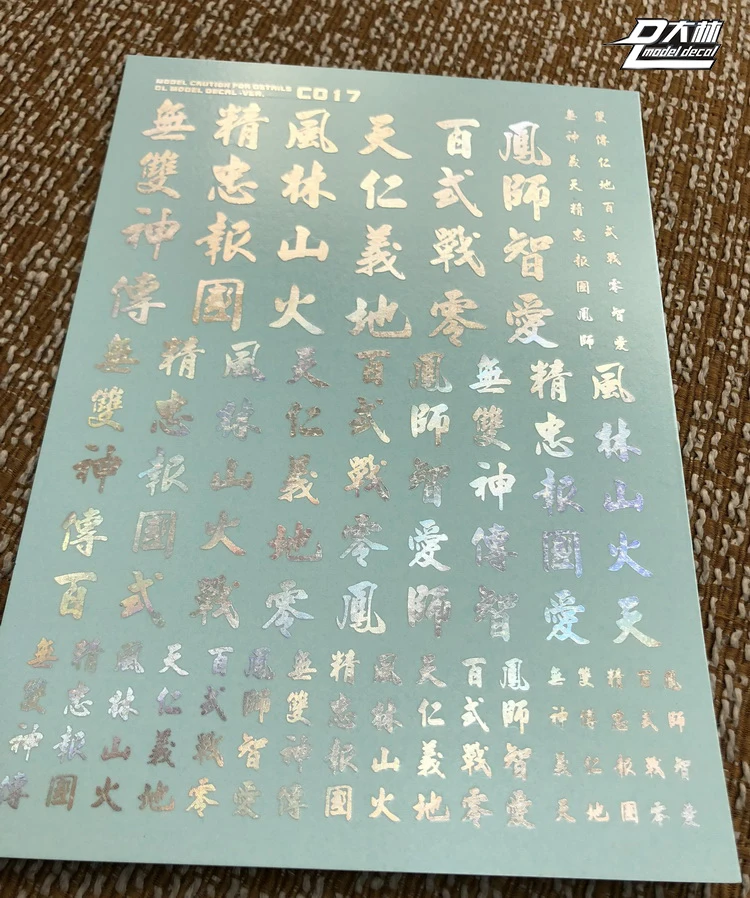 DL大林
model decal
MODEL CAUTION FOR DETAILS
DL MODEL DECAL -VER.
C017
無雙神傳
精忠報國
風林山火
天仁義地
百式戰零
鳳師智愛
無神義天精忠報國鳳師
雙傳仁地百式戰零智愛
無雙神傳百
精忠報國式
風林山火戰
天仁義地零
百式戰零鳳
鳳師智愛師
無雙神傳智
精忠報國愛
風林山火天
無雙神傳
精忠報國
風林山火
天仁義地
百式戰零
鳳師智愛
無雙神傳
精忠報國
風林山火
天仁義地
百式戰零
鳳師智愛
無神義天
雙傳仁地
精忠報國
百式戰零
鳳師智愛